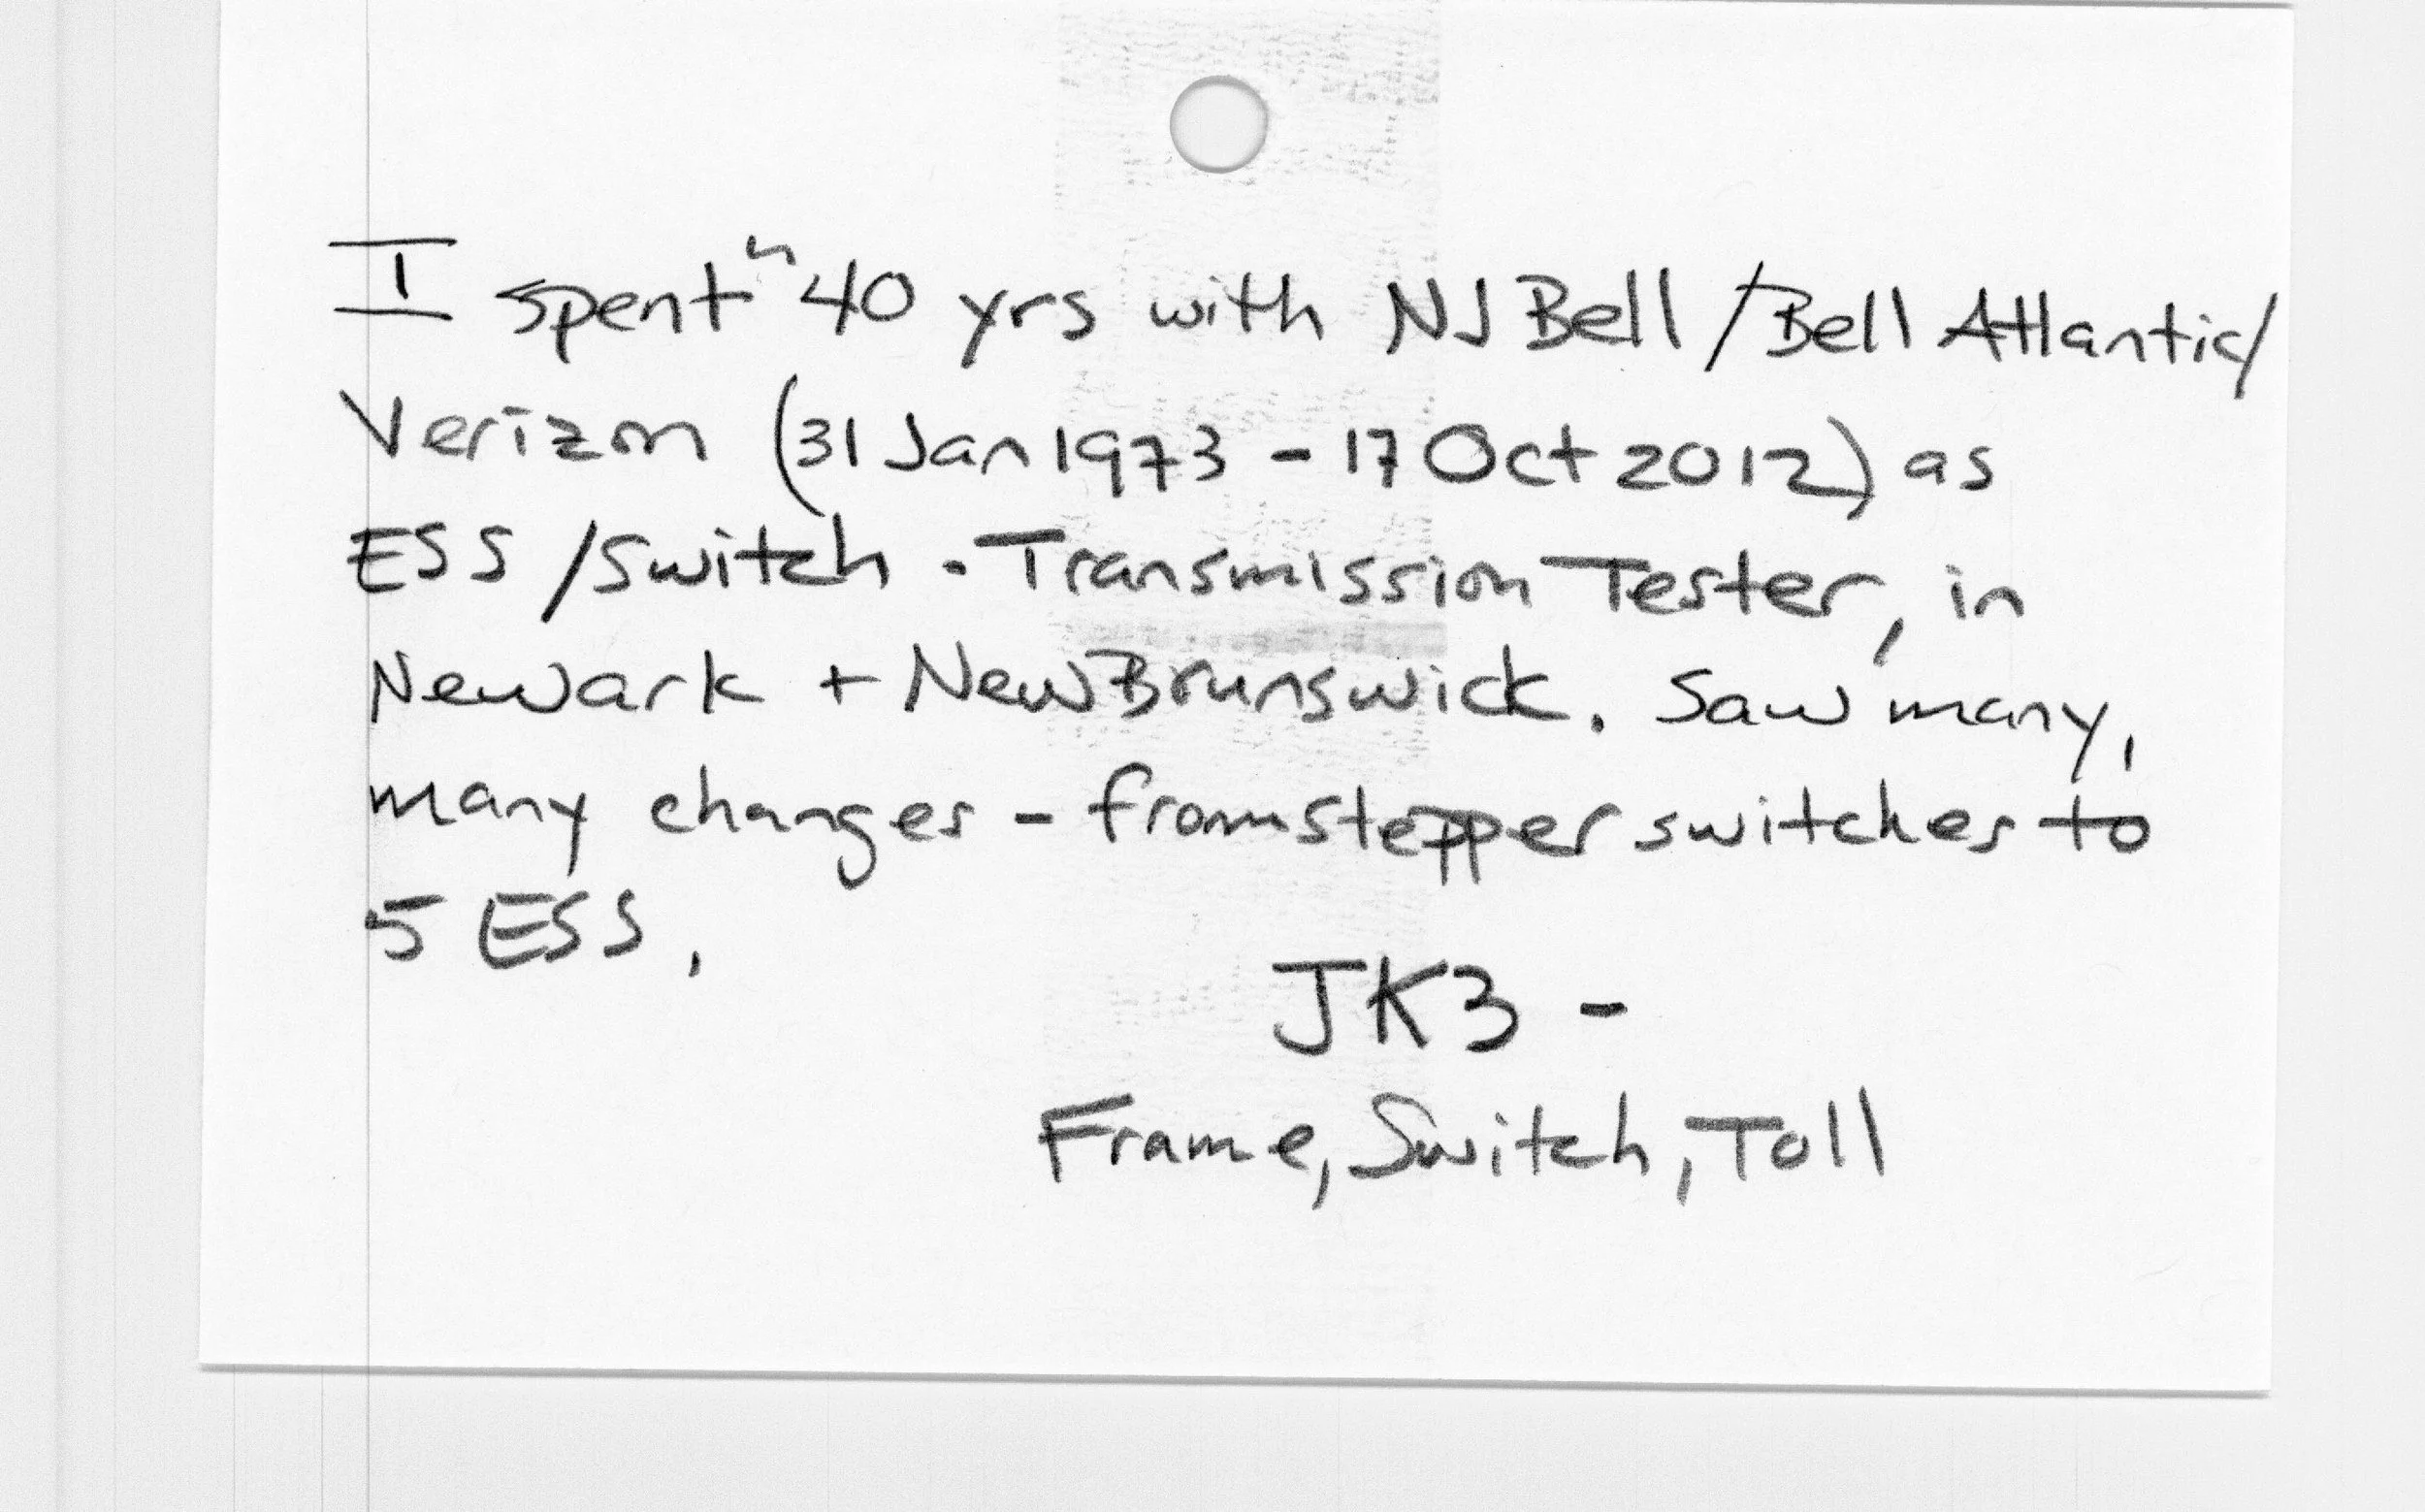 I spent ~40 yrs with NJ Bell/Bell Atlantic/
Verizon (31 Jan 1973 - 17 Oct 2012) as
ESS/Switch - Transmission Tester, in
Newark + New Brunswick. Saw many,
many changes - from stepper switches to
5 ESS.
JK3 -
Frame, Switch, Toll